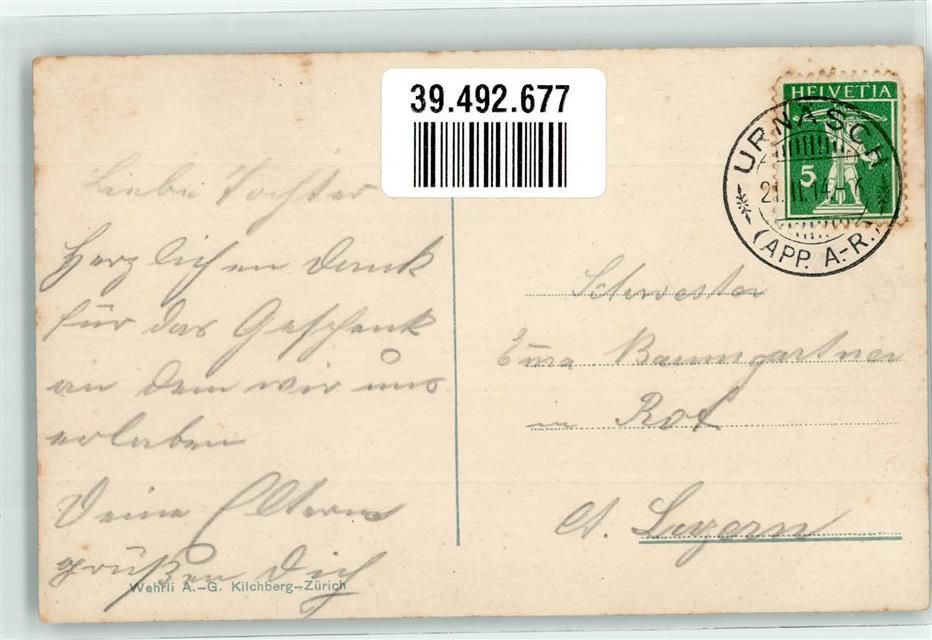 39.492.677
HELVETIA
5
URNÄSCH
21. II. 14
(APP. A.-R.)
Liebe Tochter
Herzlichen Dank
für das Geschenk
an dem wir uns
erlaben
Deine Eltern
grüßen Dich
Schwester
Emma Baumgartner
in Rot
Ct. Luzern
Wehrli A.-G. Kilchberg-Zürich